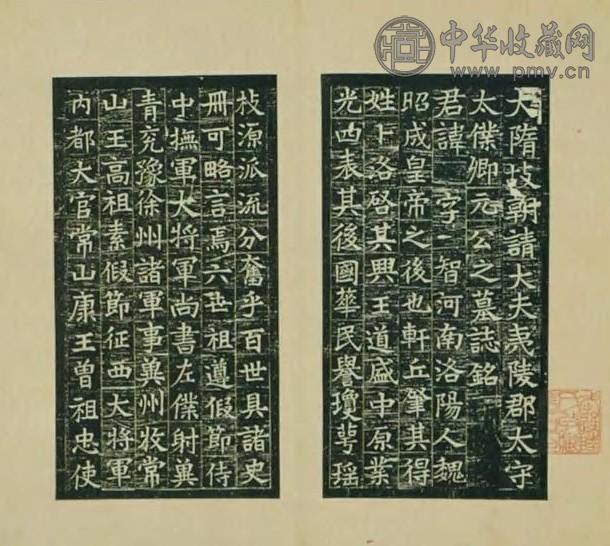 中华收藏网
www.pmv.cn
大隋故朝請大夫夷陵郡太守
太僕卿元公之墓誌銘
君諱 字 智河南洛陽人魏
昭成皇帝之後也軒丘肇其得
姓卜洛啓其興王道盛中原業
光四表其後國華民譽瓊萼瑤
枝源派流分奮乎百世具諸史
冊可略言焉六世祖遵假節侍
中撫軍大將軍尚書左僕射冀
青兖豫徐州諸軍事冀州牧常
山王高祖素假節征西大將軍
內都大官常山康王曾祖忠使